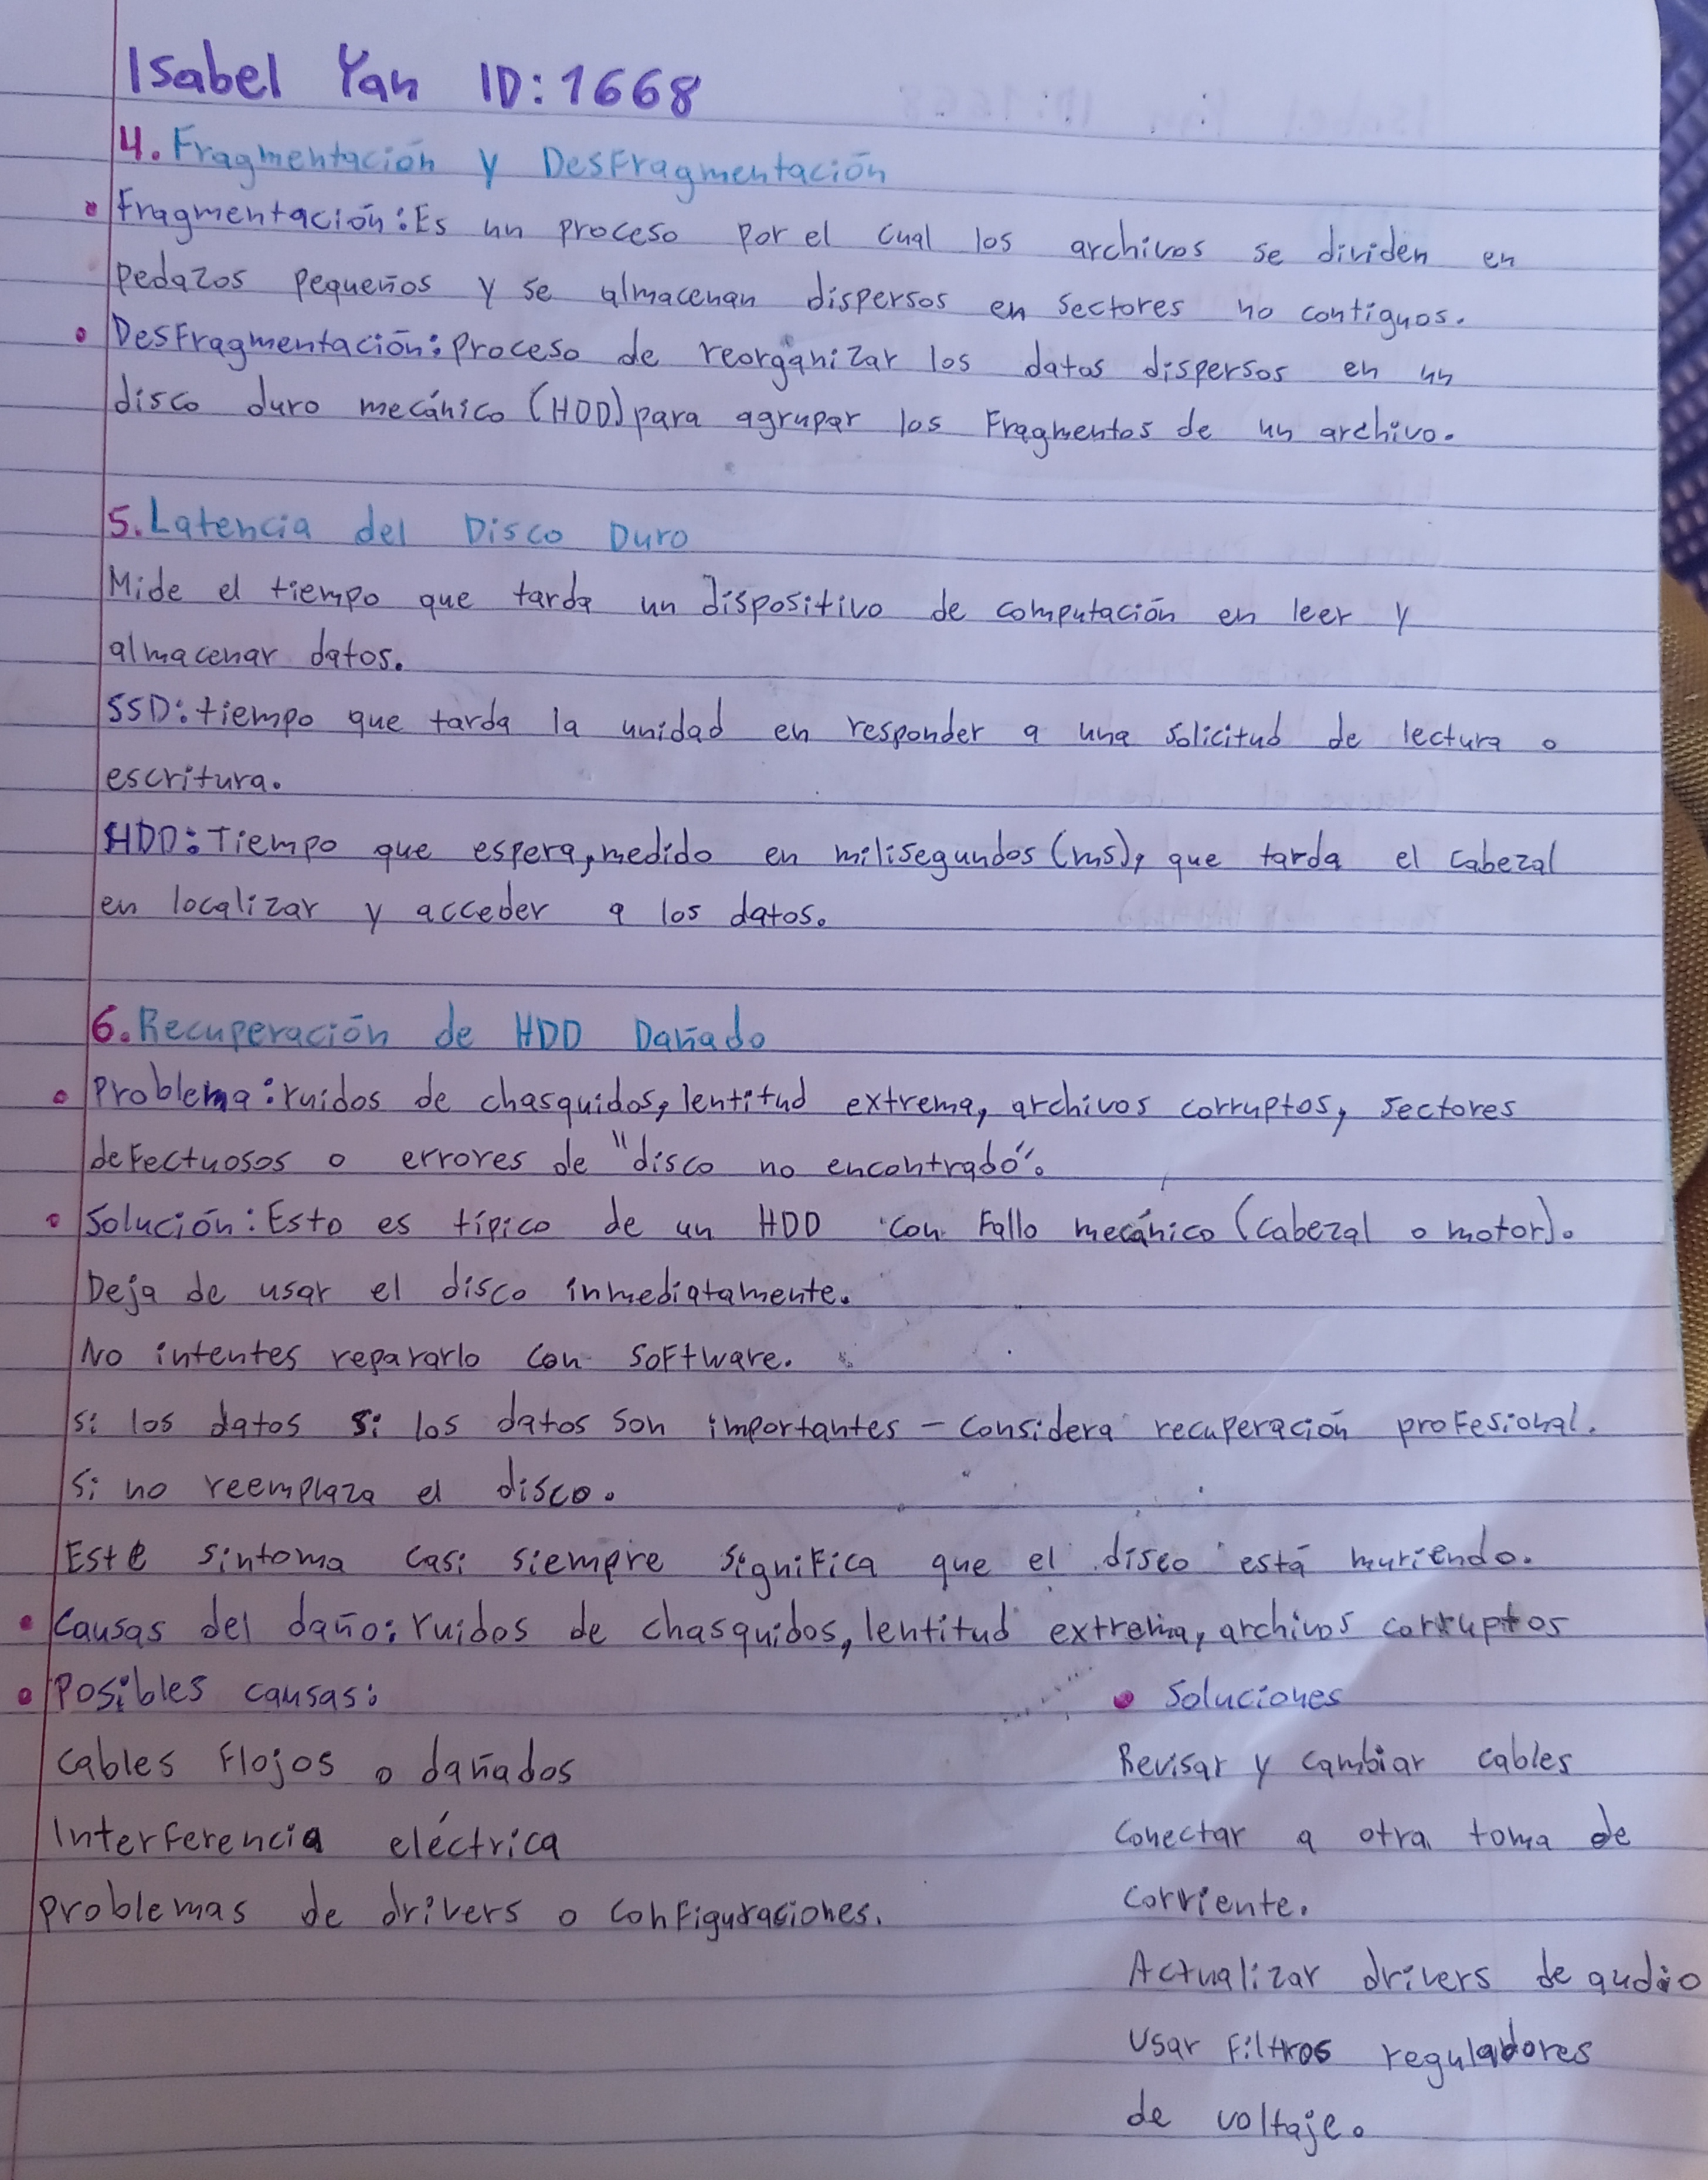 Isabel Yan ID: 1668
4. Fragmentación y Desfragmentación
• Fragmentación: Es un proceso por el cual los archivos se dividen en
pedazos pequeños y se almacenan dispersos en sectores no contiguos.
• Desfragmentación: Proceso de reorganizar los datos dispersos en un
disco duro mecánico (HDD) para agrupar los Fragmentos de un archivo.
5. Latencia del Disco Duro
Mide el tiempo que tarda un dispositivo de computación en leer y
almacenar datos.
SSD: tiempo que tarda la unidad en responder a una solicitud de lectura o
escritura.
HDD: Tiempo que espera, medido en milisegundos (ms), que tarda el cabezal
en localizar y acceder a los datos.
6. Recuperación de HDD Dañado
• Problema: ruidos de chasquidos, lentitud extrema, archivos corruptos, sectores
defectuosos o errores de "disco no encontrado".
• Solución: Esto es típico de un HDD con Fallo mecánico (cabezal o motor).
Deja de usar el disco inmediatamente.
No intentes repararlo con software.
si los datos si los datos son importantes - considera recuperación profesional.
Si no reemplaza el disco.
Este sintoma casi siempre significa que el disco está muriendo.
• Causas del daño: ruidos de chasquidos, lentitud extrema, archivos corruptos
• Posibles causas:
cables Flojos o dañados
Interferencia eléctrica
problemas de drivers o configuraciones.
• Soluciones
Revisar y cambiar cables
Conectar a otra toma de
corriente.
Actualizar drivers de audio
Usar Filtros reguladores
de voltaje.